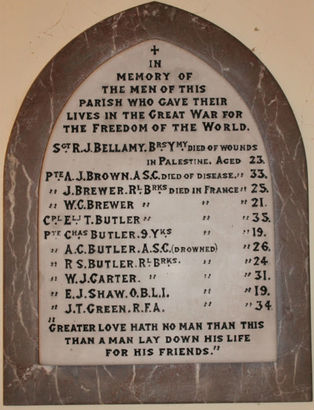 IN
MEMORY OF
THE MEN OF THIS
PARISH WHO GAVE THEIR
LIVES IN THE GREAT WAR FOR
THE FREEDOM OF THE WORLD.
SGT R.J. BELLAMY. BRSYMY DIED OF WOUNDS
IN PALESTINE. AGED 23.
PTE A.J. BROWN. A.S.C. DIED OF DISEASE. " 33.
" J. BREWER. RL BRKS DIED IN FRANCE " 25.
" W.C. BREWER " " 21.
CPL ELI T. BUTLER " " 35.
PTE CHAS BUTLER. 9. YKS " 19.
" A.C. BUTLER. A.S.C. (DROWNED) " 26.
" R S. BUTLER. RL BRKS. " " 24.
" W.J. CARTER. " " " 31.
" E.J. SHAW. O.B.L.I. " " 19.
" J.T. GREEN. R.F.A. " " 34.
"GREATER LOVE HATH NO MAN THAN THIS
THAN A MAN LAY DOWN HIS LIFE
FOR HIS FRIENDS."